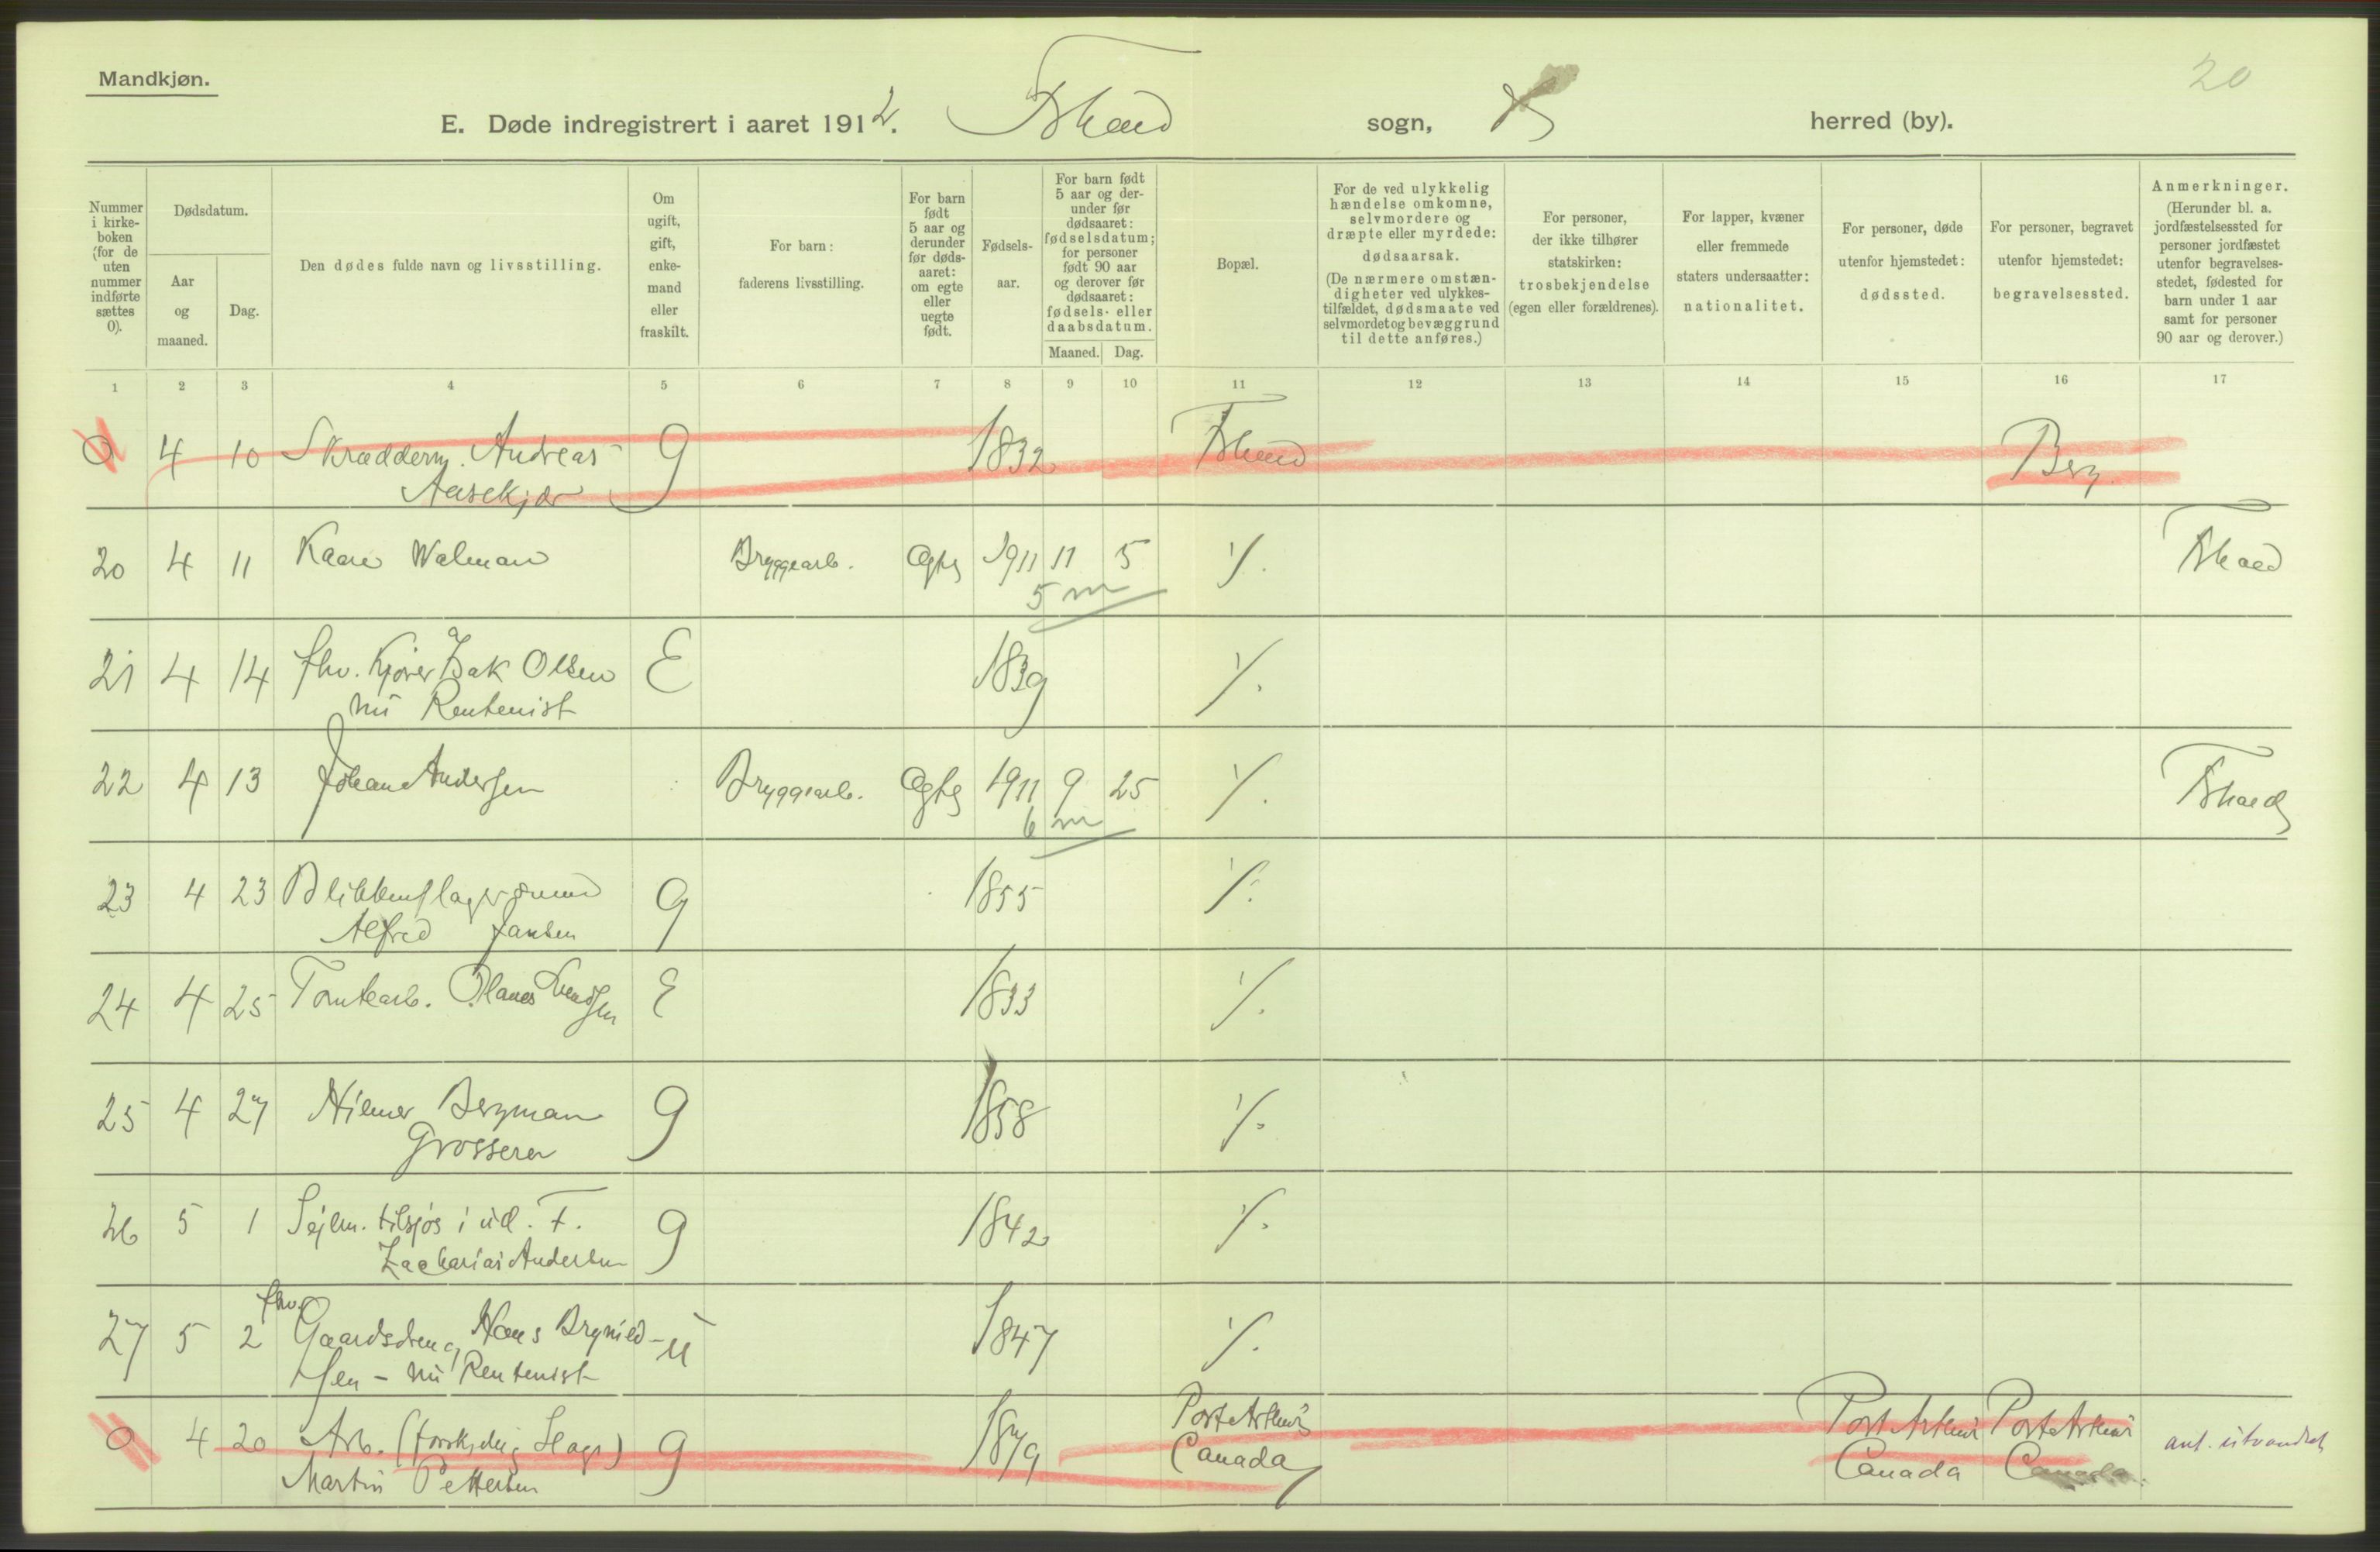 Mandkjøn.
20
E. Døde indregistrert i aaret 1912. Fshald sogn, herred (by).
Nummer i kirke-boken (for de uten nummer indførte sættes 0).
Dødsdatum.
Aar og maaned.
Dag.
Den dødes fulde navn og livsstilling.
Om ugift, gift, enke-mand eller fraskilt.
For barn: faderens livsstilling.
For barn født 5 aar og derunder før døds-aaret: om egte eller uegte født.
Fødsels-aar.
For barn født 5 aar og der-under før dødsaaret: fødselsdatum; for personer født 90 aar og derover før dødsaaret: fødsels- eller daabsdatum.
Maaned. Dag.
Bopæl.
For de ved ulykkelig hændelse omkomne, selvmordere og dræpte eller myrdede: dødsaarsak. (De nærmere omstæn-digheter ved ulykkes-tilfældet, dødsmaate ved selvmordet og bevæggrund til dette anføres.)
For personer, der ikke tilhører statskirken: trosbekjendelse (egen eller forældrenes).
For lapper, kvæner eller fremmede staters undersaatter: nationalitet.
For personer, døde utenfor hjemstedet: dødssted.
For personer, begravet utenfor hjemstedet: begravelsessted.
Anmerkninger. (Herunder bl. a. jordfæstelsessted for personer jordfæstet utenfor begravelses-stedet, fødested for barn under 1 aar samt for personer 90 aar og derover.)
1 2 3 4 5 6 7 8 9 10 11 12 13 14 15 16 17
0 4 10 Skrædderm. Andreas g 1832 Fshald Berg
Aasekjær
20 4 11 Kaare Walman Bryggearb. Ægte 1911 11 5 ./. Fshald
5 m
21 4 14 fhv. Kjører Isak Olsen E 1839 ./.
nu Rentenist
22 4 13 Johan Andersen Bryggearb. Ægte 1911 9 25 ./. Fshald
6 m
23 4 23 Blikkenslagersvend g 1855 ./.
Alfred Jansen
24 4 25 Tomtearb. Olaus Svendsen E 1833 ./.
25 4 27 Hilmer Bergman g 1858 ./.
Grosserer
26 5 1 Sejlm. tilsjøs i udl. F. g 1842 ./.
Zacharias Andersen
27 5 2 fhv. Gaardsdreng Hans Brynild- u 1847 ./.
sen - nu Rentenist
0 4 20 Arb. (forskjellig Slags) g 1879 Port Arthur Port Arthur Port Arthur ant. utvandret
Martin Pettersen Canada Canada Canada